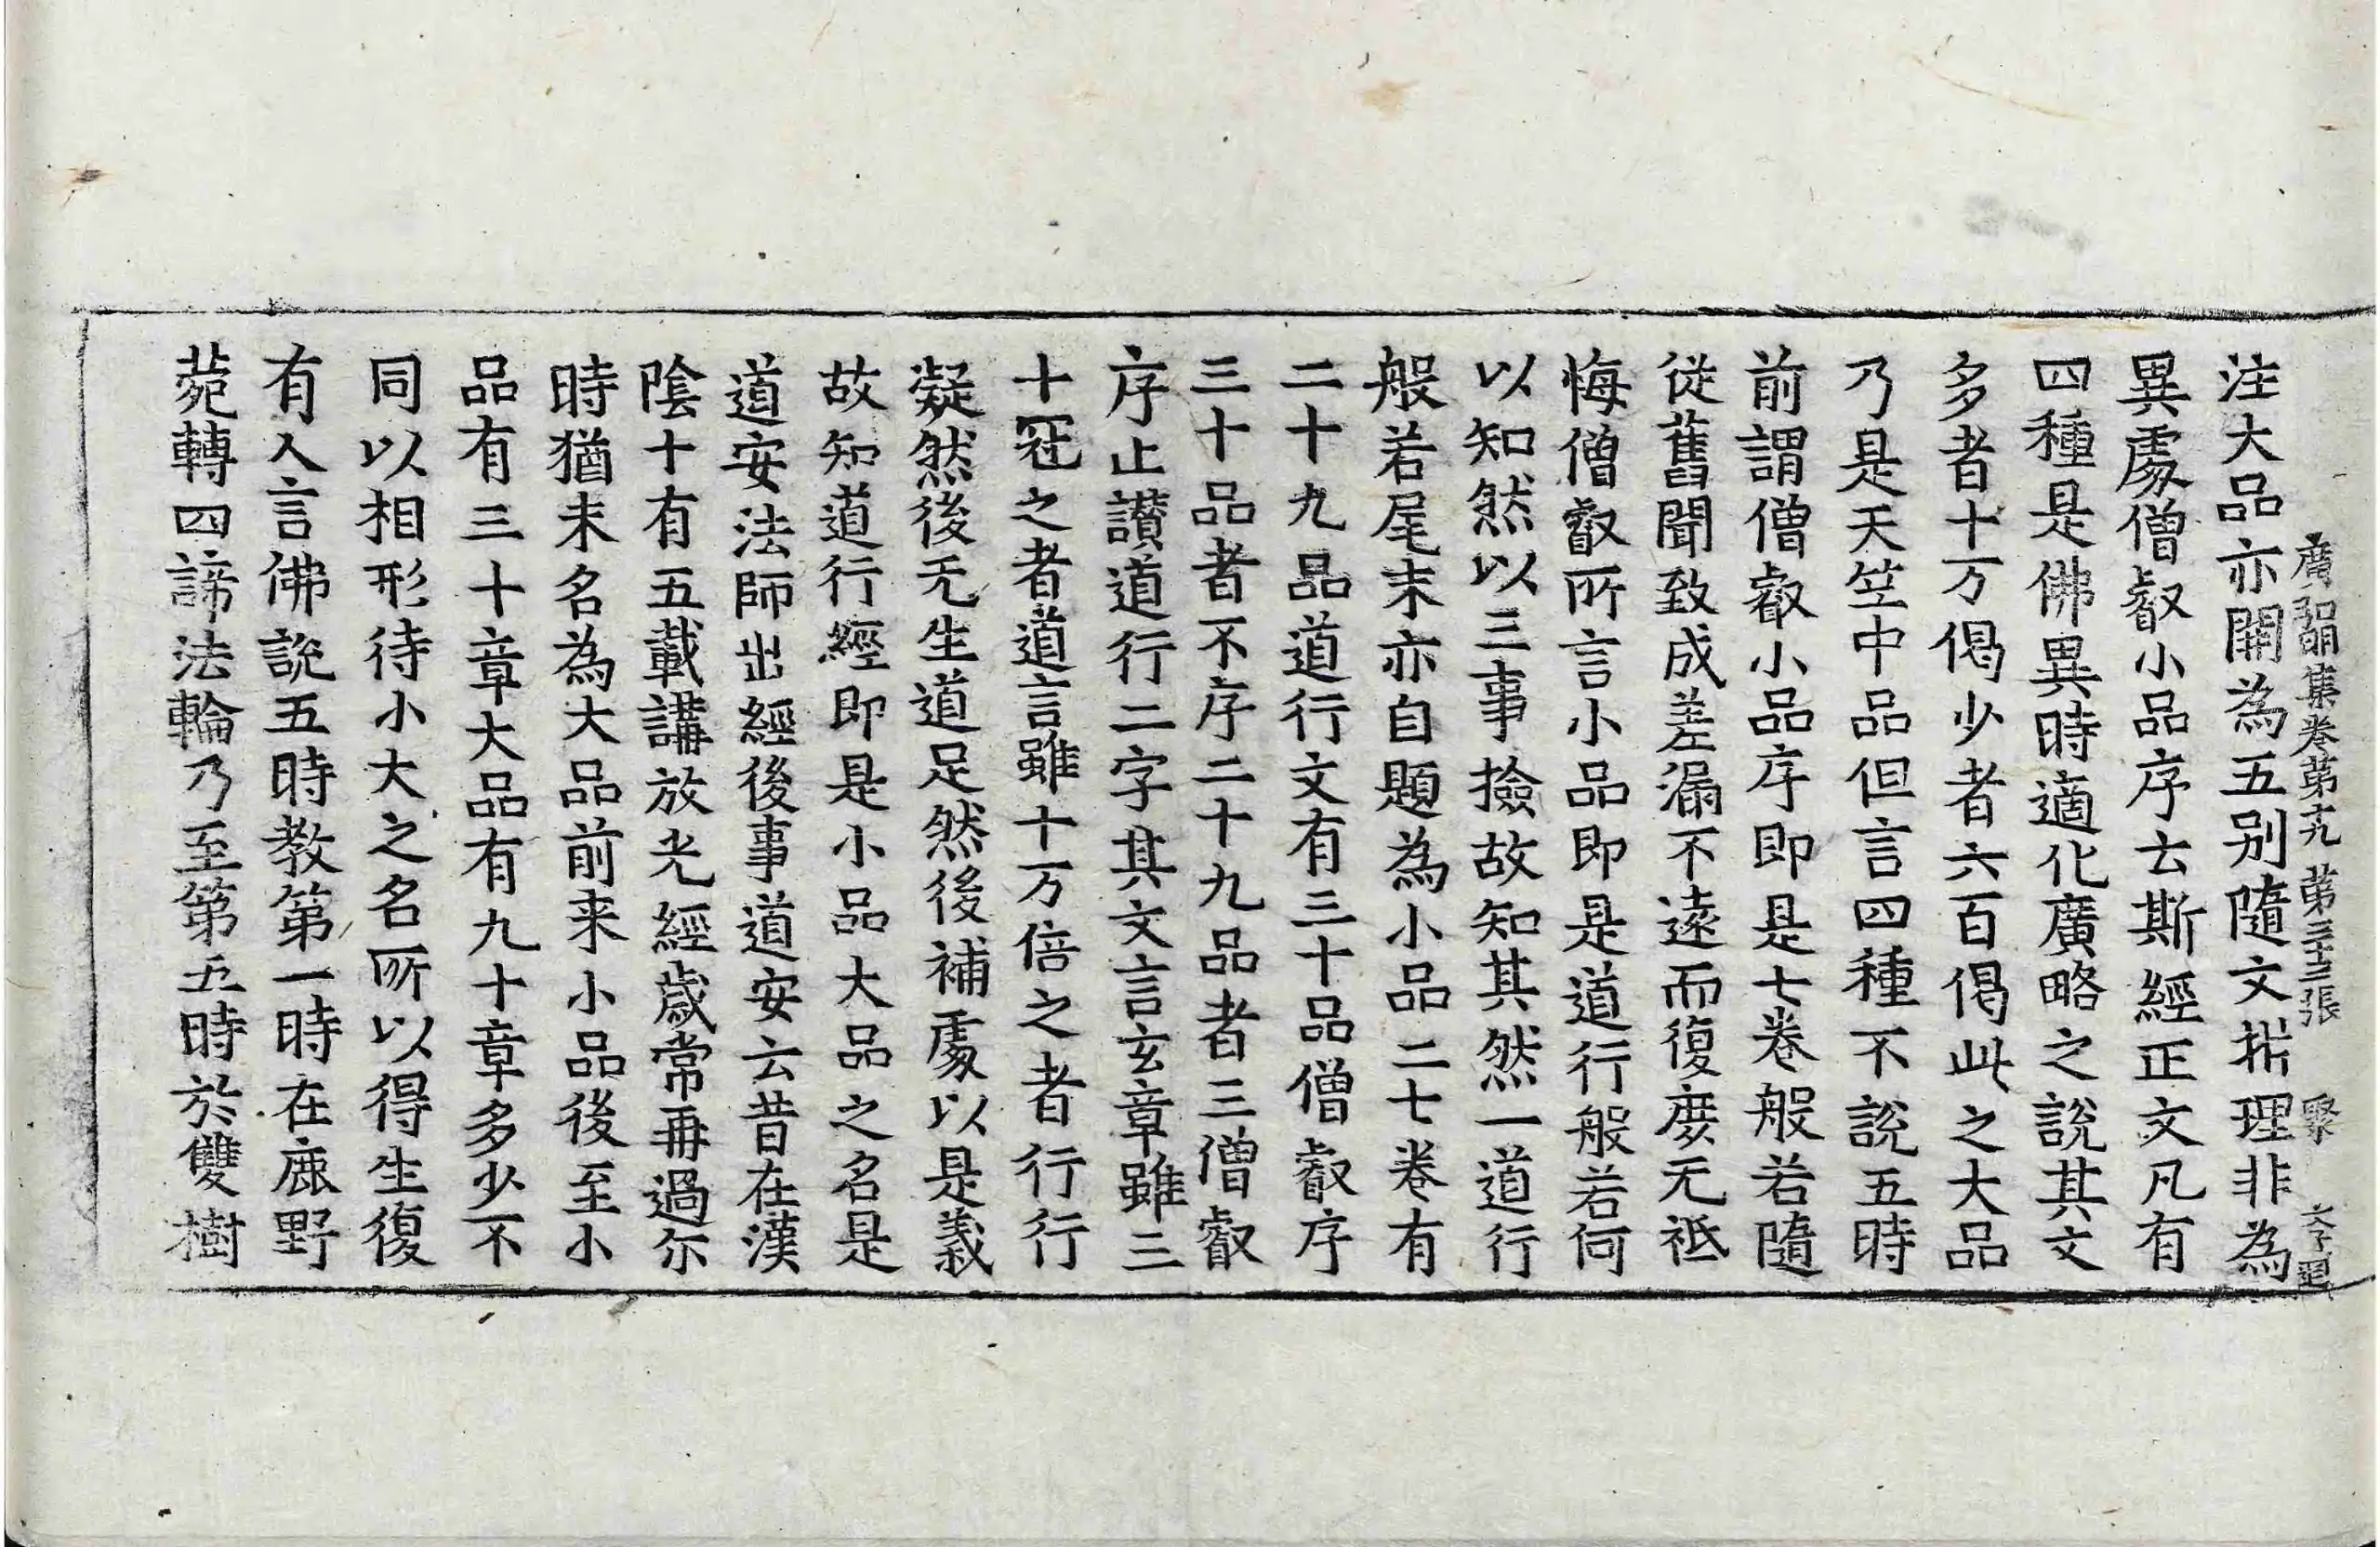 廣弘明集卷第十九 第三十三張 聚
注大品亦開為五别隨文析理非為
異處僧叡小品序云斯經正文凡有
四種是佛異時適化廣略之說其文
多者十万偈少者六百偈此之大品
乃是天竺中品但言四種不說五時
前謂僧叡小品序即是七卷般若隨
從舊聞致成差漏不遠而復庶无祗
悔僧叡所言小品即是道行般若何
以知然以三事撿故知其然一道行
般若尾末亦自題為小品二七卷有
二十九品道行文有三十品僧叡序
三十品者不序二十九品者三僧叡
序止讃道行二字其文言玄章雖三
十冠之者道言雖十万倍之者行行
凝然後无生道足然後補處以是義
故知道行經即是小品大品之名是
道安法師出經後事道安云昔在漢
陰十有五載講放光經歲常再過尒
時猶未名為大品前来小品後至小
品有三十章大品有九十章多少不
同以相形待小大之名所以得生復
有人言佛說五時教第一時在鹿野
菀轉四諦法輪乃至第五時於雙樹